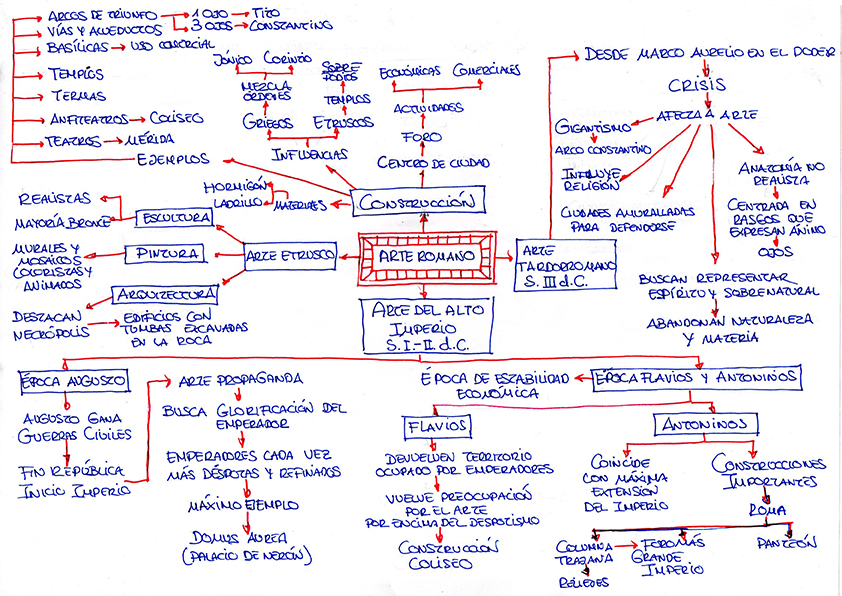 ARCOS DE TRIUNFO → 1 OJO → TITO
3 OJOS → CONSTANTINO
VÍAS Y ACUEDUCTOS
BASÍLICAS → USO COMERCIAL
TEMPLOS
TERMAS
ANFITEATROS → COLISEO
TEATROS → MÉRIDA
EJEMPLOS
JÓNICO CORINTIO
MEZCLA
ÓRDENES
GRIEGOS
SOBRE
PODIOS
TEMPLOS
ETRUSCOS
INFLUENCIAS
ECONÓMICAS COMERCIALES
ACTIVIDADES
FORO
CENTRO DE CIUDAD
HORMIGÓN
LADRILLO
MATERIALES
CONSTRUCCIÓN
DESDE MARCO AURELIO EN EL PODER
CRISIS
AFECTA A ARTE
GIGANTISMO
ARCO CONSTANTINO
INFLUYE
RELIGIÓN
CIUDADES AMURALLADAS
PARA DEFENDERSE
BUSCAN REPRESENTAR
ESPÍRITU Y SOBRENATURAL
ABANDONAN NATURALEZA
Y MATERIA
ANATOMÍA NO
REALISTA
CENTRADA EN
RASGOS QUE
EXPRESAN ÁNIMO
OJOS
REALISTAS
MAYORÍA BRONCE
ESCULTURA
MURALES Y
MOSAICOS
COLORISTAS Y
ANIMADOS
PINTURA
ARQUITECTURA
DESTACAN
NECRÓPOLIS
EDIFICIOS CON
TUMBAS EXCAVADAS
EN LA ROCA
ARTE ETRUSCO
ARTE ROMANO
ARTE
TARDORROMANO
S. III d.C.
ARTE DEL ALTO
IMPERIO
S. I-II d.C.
ÉPOCA AUGUSTO
AUGUSTO GANA
GUERRAS CIVILES
FIN REPÚBLICA
INICIO IMPERIO
ARTE PROPAGANDA
BUSCA GLORIFICACIÓN DEL
EMPERADOR
EMPERADORES CADA VEZ
MÁS DÉSPOTAS Y REFINADOS
MÁXIMO EJEMPLO
DOMUS AUREA
(PALACIO DE NERÓN)
ÉPOCA DE ESTABILIDAD
ECONÓMICA
ÉPOCA FLAVIOS Y ANTONINOS
FLAVIOS
DEVUELVEN TERRITORIO
OCUPADO POR EMPERADORES
VUELVE PREOCUPACIÓN
POR EL ARTE
POR ENCIMA DEL DESPOTISMO
CONSTRUCCIÓN
COLISEO
ANTONINOS
COINCIDE
CON MÁXIMA
EXTENSIÓN
DEL IMPERIO
CONSTRUCCIONES
IMPORTANTES
ROMA
COLUMNA
TRAJANA
RELIEVES
FORO MÁS
GRANDE
IMPERIO
PANTEÓN